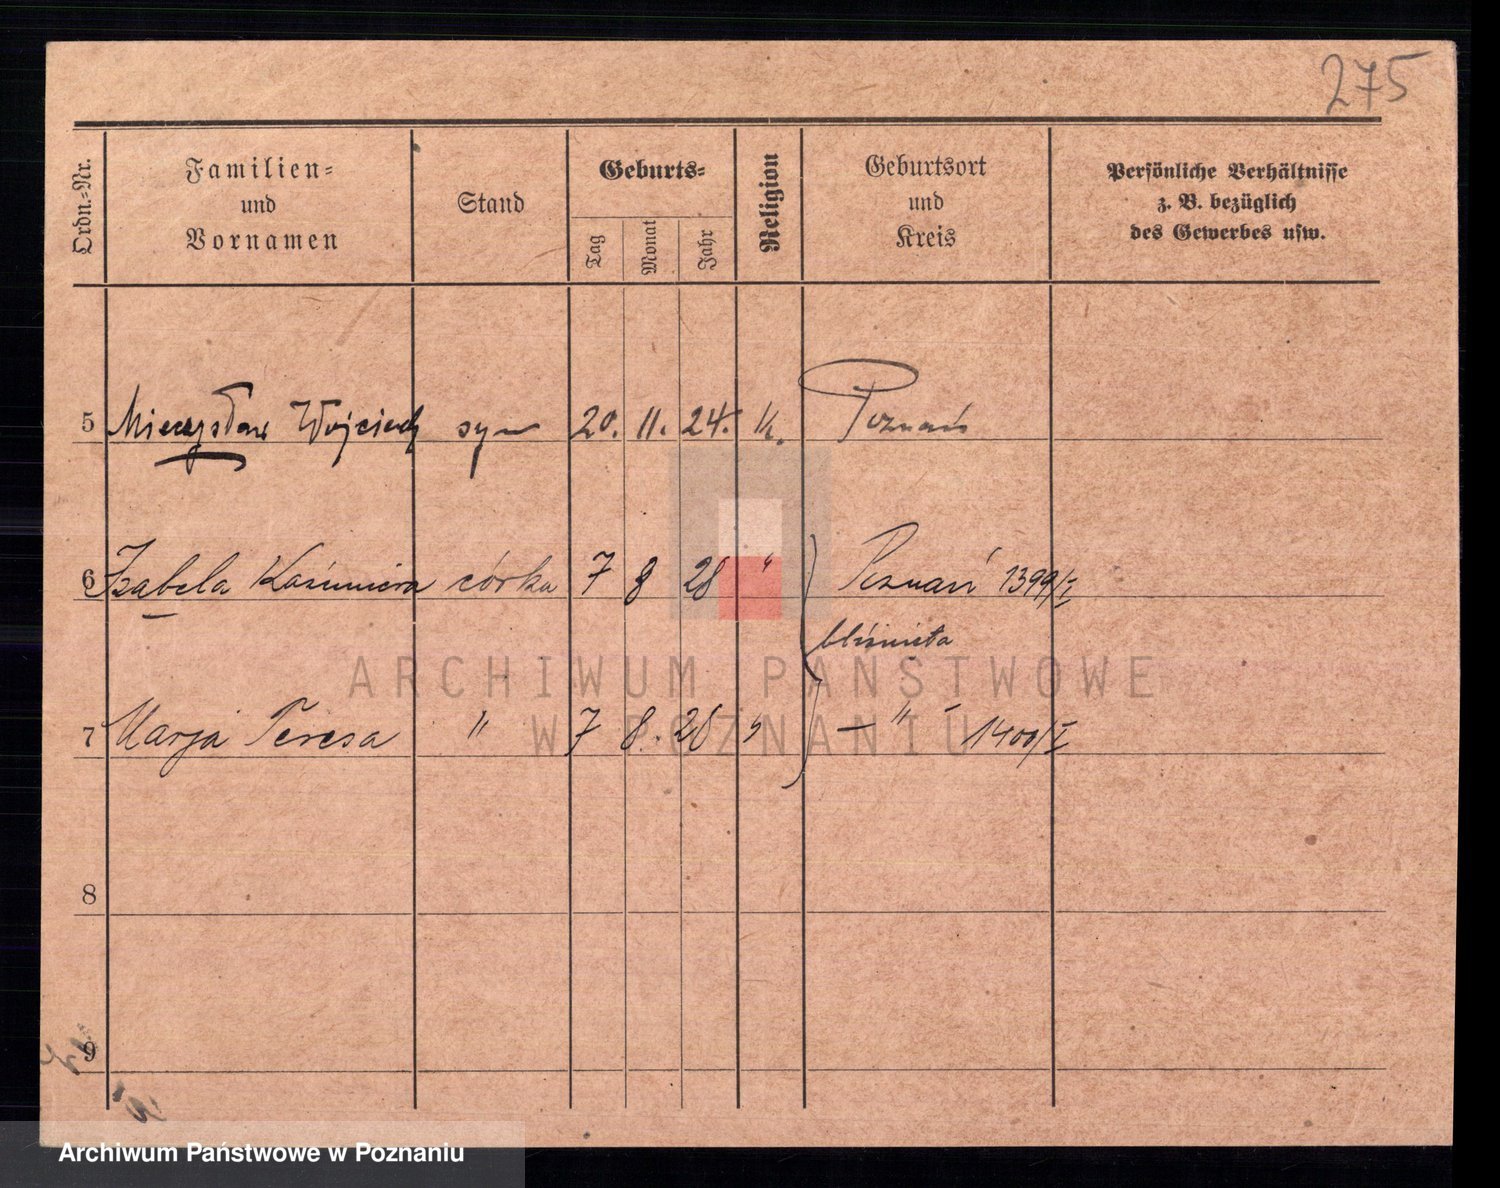 275
Ordn.-Nr.
Familien-
und
Vornamen
Stand
Geburts-
Tag
Monat
Jahr
Religion
Geburtsort
und
Kreis
Persönliche Verhältnisse
z. B. bezüglich
des Gewerbes usw.
5 Mieczysław Wojciech syn 20. 11. 24. k. Poznań
6 Izabela Kazimiera córka 7 8 28 " Poznań 1399/I
bliźnięta
7 Marja Teresa " 7 8. 28 " — " — 1400/I
8
9
ARCHIWUM PAŃSTWOWE
W POZNANIU
Archiwum Państwowe w Poznaniu